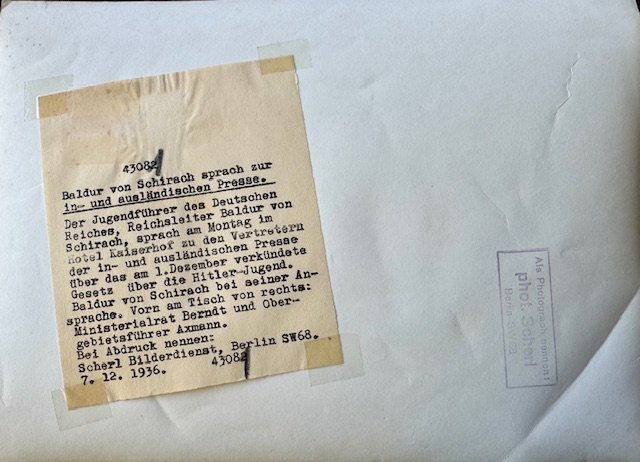 43082
Baldur von Schirach sprach zur
in- und ausländischen Presse.
Der Jugendführer des Deutschen
Reiches, Reichsleiter Baldur von
Schirach, sprach am Montag im
Hotel Kaiserhof zu den Vertretern
der in- und ausländischen Presse
über das am 1.Dezember verkündete
Gesetz über die Hitler-Jugend.
Baldur von Schirach bei seiner An-
sprache. Vorn am Tisch von rechts:
Ministerialrat Berndt und Ober-
gebietsführer Axmann.
Bei Abdruck nennen:
Scherl Bilderdienst, Berlin SW68.
7. 12. 1936. 43082
Als Photograph nennen:
phot. Scherl